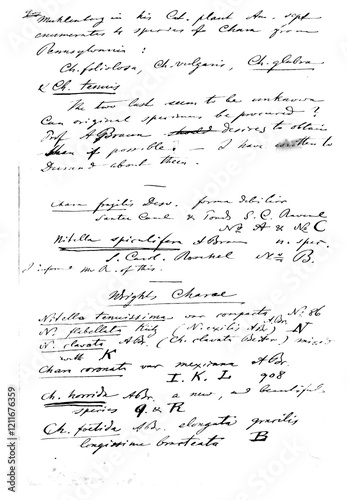 Muhlenberg in his Cat. plant Am. sept
enumerates 4 species of Chara from
Pennsylvania :
Ch. foliolosa, Ch. vulgaris, Ch. glabra
& Ch. tenuis
The two last seem to be unknown
Can original specimens be procured ?
Prof A Braun desires to obtain
them if possible. — I have written to
about them.
Chara fragilis Desv. forma debilior
Santee Canal & Ponds S. C. Ravenel
No A & No C
Nitella spiculifera A Braun n. spec.
S. Carol. Ravenel No B.
I informed Mr R. of this.
Wrights Charae
Nitella tenuissima var compacta ABr. No 86
N. flabellata Kütz (N. exilis ABr) N
N. clavata ABr. (Ch. clavata Bertero) mixed
with K
Chara coronata var mexicana ABr
I. K. L 908
Ch. horrida ABr. a new, and beautiful
species Q & R
Ch. foetida ABr. elongata gracilis
longissime bracteata B
Adobe Stock | #1211676359